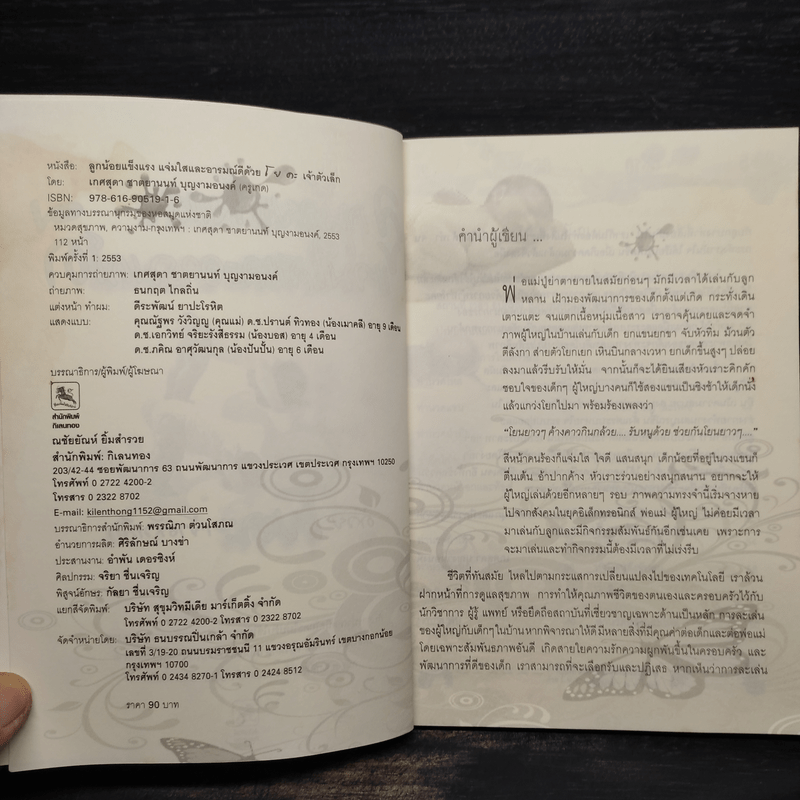 หนังสือ: ลูกน้อยแข็งแรง แจ่มใสและอารมณ์ดีด้วย โยคะ เจ้าตัวเล็ก
โดย: เกศสุดา ชาตยานนท์ บุญงามอนงค์ (ครูเกด)
ISBN: 978-616-90519-1-6
ข้อมูลทางบรรณานุกรมของหอสมุดแห่งชาติ
หมวดสุขภาพ, ความงาม-กรุงเทพฯ : เกศสุดา ชาตยานนท์ บุญงามอนงค์, 2553
112 หน้า
พิมพ์ครั้งที่ 1: 2553
ควบคุมการถ่ายภาพ: เกศสุดา ชาตยานนท์ บุญงามอนงค์
ถ่ายภาพ: ธนกฤต ไกลถิ่น
แต่งหน้า ทำผม: ตีระพัฒน์ ยาปะโรหิต
แสดงแบบ: คุณณัฐพร วังวิญญู (คุณแม่) ด.ช.ปรานต์ ทิวทอง (น้องเมาคลี) อายุ 9 เดือน
ด.ช.เอกวิทย์ จริยะรังสีธรรม (น้องบอส) อายุ 4 เดือน
ด.ช.ภคิณ อาศุวัฒนกุล (น้องปันปั้น) อายุ 6 เดือน
บรรณาธิการ/ผู้พิมพ์/ผู้โฆษณา
สำนักพิมพ์
กิเลนทอง
ณชัยยัณห์ ยิ้มสำรวย
สำนักพิมพ์: กิเลนทอง
203/42-44 ซอยพัฒนาการ 63 ถนนพัฒนาการ แขวงประเวศ เขตประเวศ กรุงเทพฯ 10250
โทรศัพท์ 0 2722 4200-2
โทรสาร 0 2322 8702
E-mail: kilenthong1152@gmail.com
บรรณาธิการสำนักพิมพ์: พรรณิภา ต่วนโสภณ
อำนวยการผลิต: ศิริลักษณ์ บางขำ
ประสานงาน: อำพัน เดอรซิงห์
ศิลปกรรม: จริยา ชื่นเจริญ
พิสูจน์อักษร: กัลยา ชื่นเจริญ
แยกสีจัดพิมพ์: บริษัท สุขุมวิทมีเดีย มาร์เก็ตติ้ง จำกัด
โทรศัพท์ 0 2722 4200-2 โทรสาร 0 2322 8702
จัดจำหน่ายโดย: บริษัท ธนบรรณปิ่นเกล้า จำกัด
เลขที่ 3/19-20 ถนนบรมราชชนนี 11 แขวงอรุณอัมรินทร์ เขตบางกอกน้อย
กรุงเทพฯ 10700
โทรศัพท์ 0 2434 8270-1 โทรสาร 0 2424 8512
ราคา 90 บาท
คำนำผู้เขียน ...
พ่อแม่ปู่ย่าตายายในสมัยก่อนๆ มักมีเวลาได้เล่นกับลูก
หลาน เฝ้ามองพัฒนาการของเด็กตั้งแต่เกิด กระทั่งเดิน
เตาะแตะ จนแตกเนื้อหนุ่มเนื้อสาว เราอาจคุ้นเคยและจดจำ
ภาพผู้ใหญ่ในบ้านเล่นกับเด็ก ยกแขนยกขา จับหัวทิ่ม ม้วนตัว
ตีลังกา สายตัวโยกเยก เหินบินกลางเวหา ยกเด็กขึ้นสูงๆ ปล่อย
ลงมาแล้วรีบรับให้มั่น จากนั้นก็จะได้ยินเสียงหัวเราะคิกคัก
ชอบใจของเด็กๆ ผู้ใหญ่บางคนก็ใช้สองแขนเป็นชิงช้าให้เด็กนั่ง
แล้วแกว่งโยกไปมา พร้อมร้องเพลงว่า
"โยนยาวๆ ค้างคาวกินกล้วย.... รับหนูด้วย ช่วยกันโยนยาวๆ...."
สีหน้าคนร้องก็แจ่มใส ใจดี แสนสนุก เด็กน้อยที่อยู่ในวงแขนก็
ตื่นเต้น อ้าปากค้าง หัวเราะร่วนอย่างสนุกสนาน อยากจะให้
ผู้ใหญ่เล่นด้วยอีกหลายๆ รอบ ภาพความทรงจำนี้เริ่มจางหาย
ไปจากสังคมในยุคอิเล็กทรอนิกส์ พ่อแม่ ผู้ใหญ่ ไม่ค่อยมีเวลา
มาเล่นกับลูกและมีกิจกรรมสัมพันธ์กันอีกเช่นเคย เพราะการ
จะมาเล่นและทำกิจกรรมนี้ต้องมีเวลาที่ไม่เร่งรีบ
ชีวิตที่ทันสมัย ไหลไปตามกระแสการเปลี่ยนแปลงไปของเทคโนโลยี เราล้วน
ฝากหน้าที่การดูแลสุขภาพ การทำให้คุณภาพชีวิตของตนเองและครอบครัวไว้กับ
นักวิชาการ ผู้รู้ แพทย์ หรือยึดถือสถาบันที่เชี่ยวชาญเฉพาะด้านเป็นหลัก การละเล่น
ของผู้ใหญ่กับเด็กๆ ในบ้านหากพิจารณาให้ดีมีหลายสิ่งที่มีคุณค่าต่อเด็กและต่อพ่อแม่
โดยเฉพาะสัมพันธภาพอันดี เกิดสายใยความรักความผูกพันขึ้นในครอบครัว และ
พัฒนาการที่ดีของเด็ก เราสามารถที่จะเลือกรับและปฏิเสธ หากเห็นว่าการละเล่น